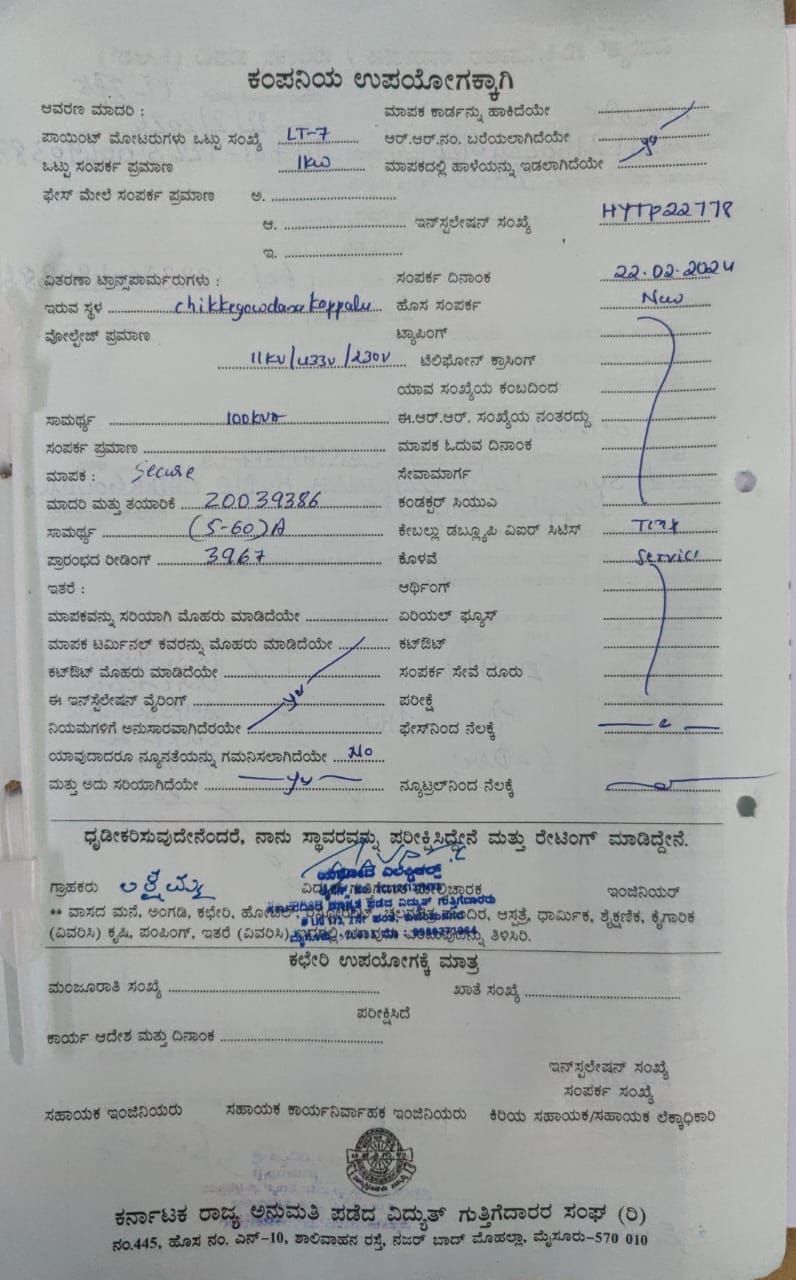 ಕಂಪನಿಯ ಉಪಯೋಗಕ್ಕಾಗಿ
ಆವರಣ ಮಾದರಿ : ಮಾಪಕ ಕಾರ್ಡನ್ನು ಹಾಕಿದೆಯೇ
ಪಾಯಿಂಟ್ ಮೋಟರುಗಳು ಒಟ್ಟು ಸಂಖ್ಯೆ LT-7 ಆರ್.ಆರ್.ನಂ. ಬರೆಯಲಾಗಿದೆಯೇ
ಒಟ್ಟು ಸಂಪರ್ಕ ಪ್ರಮಾಣ 1KW ಮಾಪಕದಲ್ಲಿ ಹಾಳೆಯನ್ನು ಇಡಲಾಗಿದೆಯೇ
ಫೇಸ್ ಮೇಲೆ ಸಂಪರ್ಕ ಪ್ರಮಾಣ ಅ.
ಆ. ಇನ್‌ಸ್ಟಲೇಷನ್ ಸಂಖ್ಯೆ HYTP22778
ಇ.
ವಿತರಣಾ ಟ್ರಾನ್ಸ್‌ಪಾರ್ಮರುಗಳು : ಸಂಪರ್ಕ ದಿನಾಂಕ 22.02.2024
ಇರುವ ಸ್ಥಳ chikkegowdana koppalu ಹೊಸ ಸಂಪರ್ಕ New
ವೋಲ್ಟೇಜ್ ಪ್ರಮಾಣ ಟ್ಯಾಪಿಂಗ್
11KV/433V/230V ಟೆಲಿಫೋನ್ ಕ್ರಾಸಿಂಗ್
ಯಾವ ಸಂಖ್ಯೆಯ ಕಂಬದಿಂದ
ಸಾಮರ್ಥ್ಯ 100KVA ಈ.ಆರ್.ಆರ್. ಸಂಖ್ಯೆಯ ನಂತರದ್ದು
ಸಂಪರ್ಕ ಪ್ರಮಾಣ ಮಾಪಕ ಓದುವ ದಿನಾಂಕ
ಮಾಪಕ : Secure ಸೇವಾಮಾರ್ಗ
ಮಾದರಿ ಮತ್ತು ತಯಾರಿಕೆ 20039386 ಕಂಡಕ್ಟರ್ ಸಿಯುಎ
ಸಾಮರ್ಥ್ಯ (5-60)A ಕೇಬಲ್ಲು ಡಬ್ಲ್ಯೂಪಿ ವಿಐರ್ ಸಿಟಿಸ್
ಪ್ರಾರಂಭದ ರೀಡಿಂಗ್ 3967 ಕೊಳವೆ Service
ಇತರೆ : ಆರ್ಥಿಂಗ್
ಮಾಪಕವನ್ನು ಸರಿಯಾಗಿ ಮೊಹರು ಮಾಡಿದೆಯೇ ಏರಿಯಲ್ ಫ್ಯೂಸ್
ಮಾಪಕ ಟರ್ಮಿನಲ್ ಕವರನ್ನು ಮೊಹರು ಮಾಡಿದೆಯೇ ಕಟ್‌ಔಟ್
ಕಟ್‌ಔಟ್ ಮೊಹರು ಮಾಡಿದೆಯೇ ಸಂಪರ್ಕ ಸೇವೆ ದೂರು
ಈ ಇನ್‌ಸ್ಟೆಲೇಷನ್ ವೈರಿಂಗ್ ಪರೀಕ್ಷೆ
ನಿಯಮಗಳಿಗೆ ಅನುಸಾರವಾಗಿದೆರಯೇ ಫೇಸ್‌ನಿಂದ ನೆಲಕ್ಕೆ
ಯಾವುದಾದರೂ ನ್ಯೂನತೆಯನ್ನು ಗಮನಿಸಲಾಗಿದೆಯೇ No
ಮತ್ತು ಅದು ಸರಿಯಾಗಿದೆಯೇ ನ್ಯೂಟ್ರಲ್‌ನಿಂದ ನೆಲಕ್ಕೆ
ಧೃಡೀಕರಿಸುವುದೇನೆಂದರೆ, ನಾನು ಸ್ಥಾವರವನ್ನು ಪರೀಕ್ಷಿಸಿದ್ದೇನೆ ಮತ್ತು ರೇಟಿಂಗ್ ಮಾಡಿದ್ದೇನೆ.
ಗ್ರಾಹಕರು ಇಂಜಿನಿಯರ್
** ವಾಸದ ಮನೆ, ಅಂಗಡಿ, ಕಛೇರಿ, ಹೋಟೆಲ್, ಆಸ್ಪತ್ರೆ, ಧಾರ್ಮಿಕ, ಶೈಕ್ಷಣಿಕ, ಕೈಗಾರಿಕ
(ವಿವರಿಸಿ) ಕೃಷಿ, ಪಂಪಿಂಗ್, ಇತರೆ (ವಿವರಿಸಿ) ತಿಳಿಸಿರಿ.
ಕಛೇರಿ ಉಪಯೋಗಕ್ಕೆ ಮಾತ್ರ
ಮಂಜೂರಾತಿ ಸಂಖ್ಯೆ ಖಾತೆ ಸಂಖ್ಯೆ
ಪರೀಕ್ಷಿಸಿದೆ
ಕಾರ್ಯ ಆದೇಶ ಮತ್ತು ದಿನಾಂಕ
ಇನ್‌ಸ್ಟಲೇಷನ್ ಸಂಖ್ಯೆ
ಸಂಪರ್ಕ ಸಂಖ್ಯೆ
ಸಹಾಯಕ ಇಂಜಿನಿಯರು ಸಹಾಯಕ ಕಾರ್ಯನಿರ್ವಾಹಕ ಇಂಜಿನಿಯರು ಕಿರಿಯ ಸಹಾಯಕ/ಸಹಾಯಕ ಲೆಕ್ಕಾಧಿಕಾರಿ
ಕರ್ನಾಟಕ ರಾಜ್ಯ ಅನುಮತಿ ಪಡೆದ ವಿದ್ಯುತ್ ಗುತ್ತಿಗೆದಾರರ ಸಂಘ (ರಿ)
ನಂ.445, ಹೊಸ ನಂ. ಎನ್-10, ಶಾಲಿವಾಹನ ರಸ್ತೆ, ನಜರ್ ಬಾದ್ ಮೊಹಲ್ಲಾ, ಮೈಸೂರು-570 010